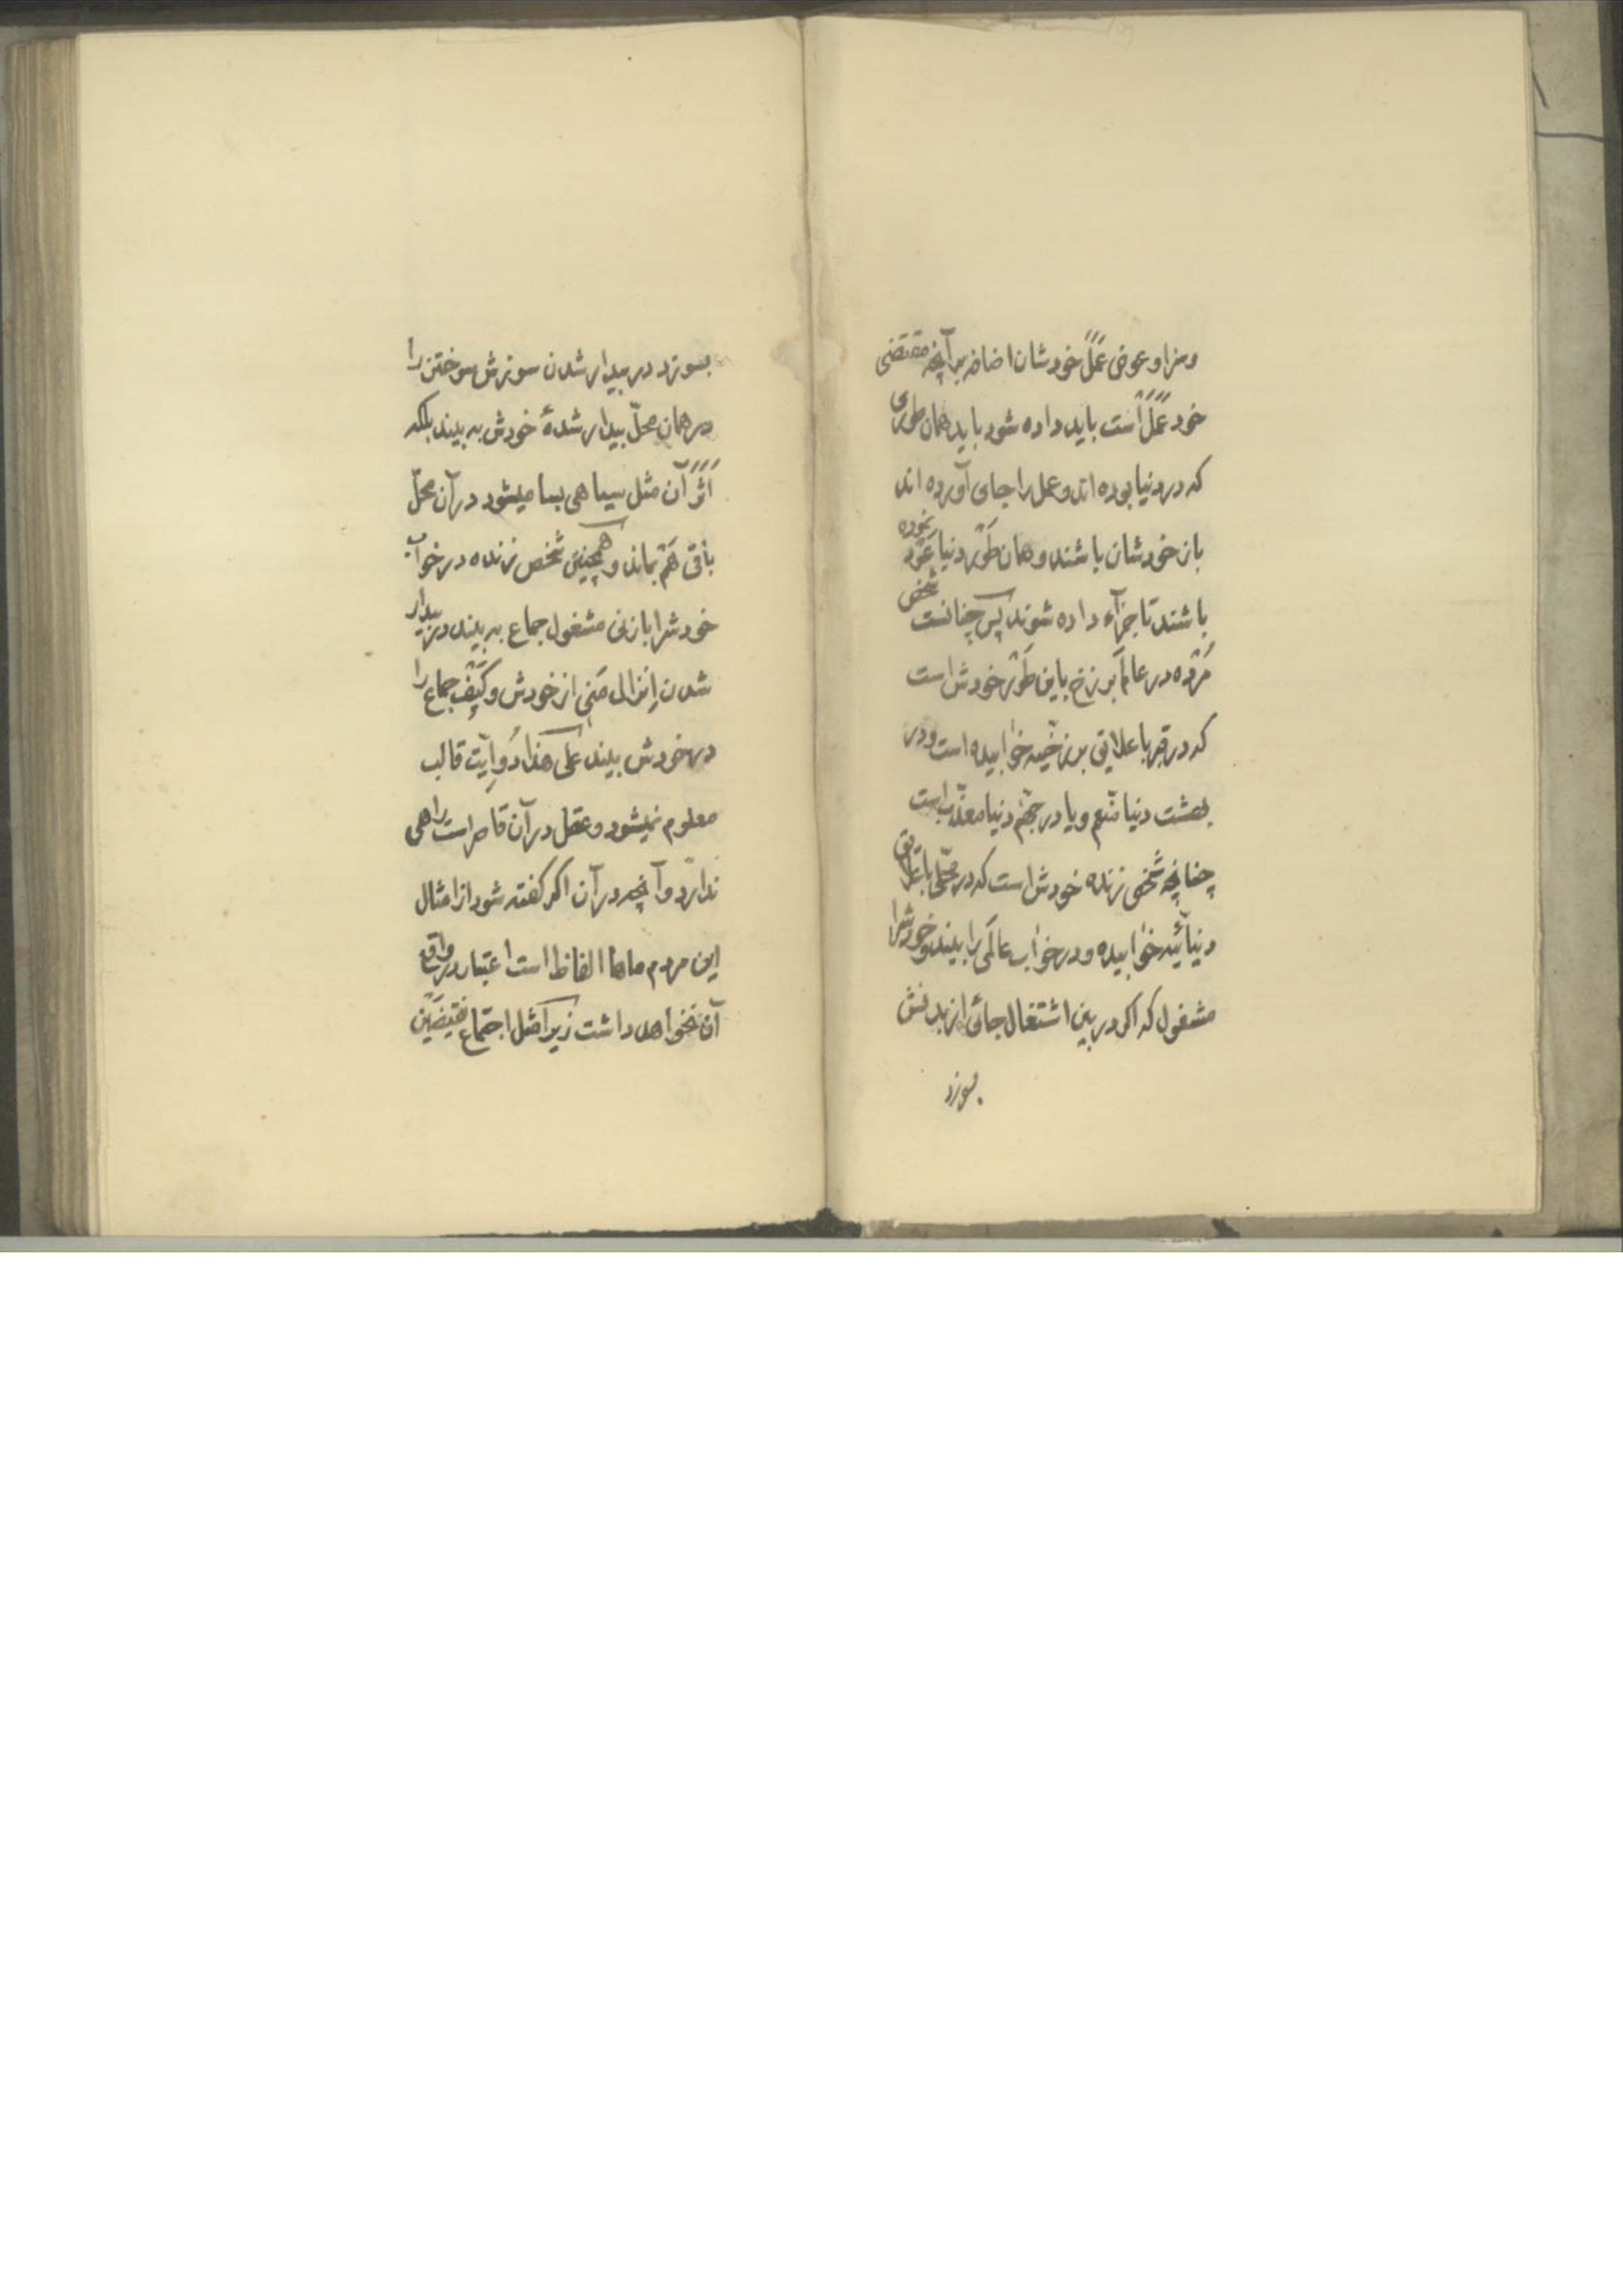 وسزا و عوض عَمَلً خودشان اضافه بر آنچه مقتضی
خود عَمَلً است باید داده شود باید همان طوری
که در دنیا بوده اند و عمل را جای آورده اند
باز خودشان باشند و همان طَوْر دنیا عَوْد نموده
باشند تا جزآء داده شوند پس چنانست شخص
مُرْده در عالَم برزخ باین طَوْر خودش است
که در قبر با علایق برزخیّه خوابیده است و در
بهشت دنیا متنعّم و یا در جهنّم دنیا معذّب است
چنانچه شخص زنده خودش است که در محلّی با علایق
دنیائیّه خوابیده و در خواب عالَمی را بیند و خودش را
مشغول که اگر در بین اشتغال جائی از بدنش
بسوزد
بسوزد در بیدار شدن سوزش سوختن را
در همان محلّ بیدار شدهٔ خودش به بیند بلکه
اَثَرً آن مثل سیاهی بسا میشود در آن محلّ
باقی هَمْ بماند و همچنین شخص زنده در خواب
خودشرا با زنی مشغول جماع به بیند در بیدار
شدن اِنزال مَنی از خودش و کَیْف جماع را
در خودش بیند علی هذا دَو آیت قالب
معلوم نمیشود و عقل در آن قاصر است راهی
ندارد و آنچه در آن اگر گفته شود از امثال
این مردم ماها الفاظ است اعتبار در واقع
آن نخواهد داشت زیرا مثل اجتماع نقیضَیْن